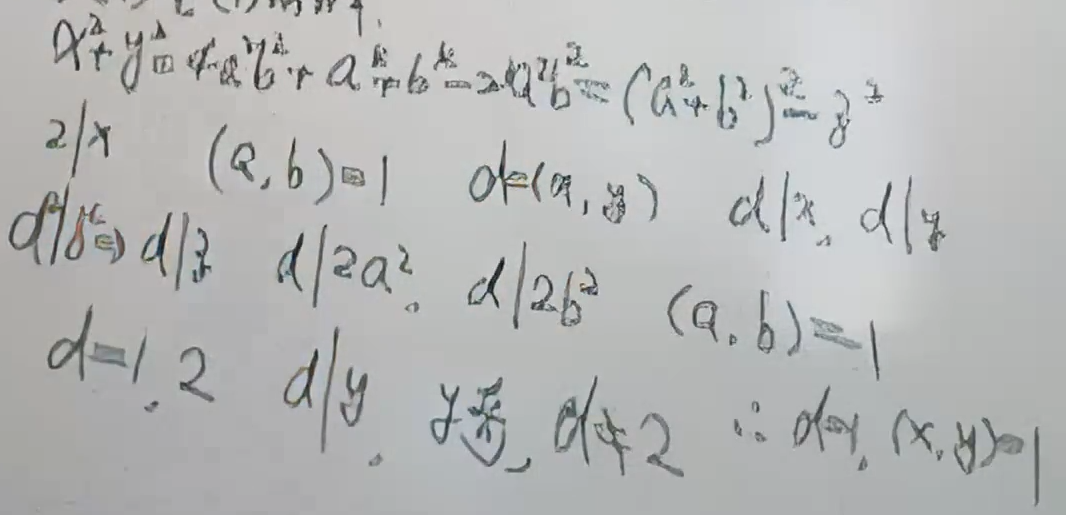 x²+y²=4a²b²+a⁴+b⁴-2a²b²=(a²+b²)²=z²
2|x (a,b)=1 d=(x,y) d|x, d|y
d²|z²⇒d|z d|2a², d|2b² (a,b)=1
d=1,2 d|y, y奇, d≠2 ∴d=1, (x,y)=1